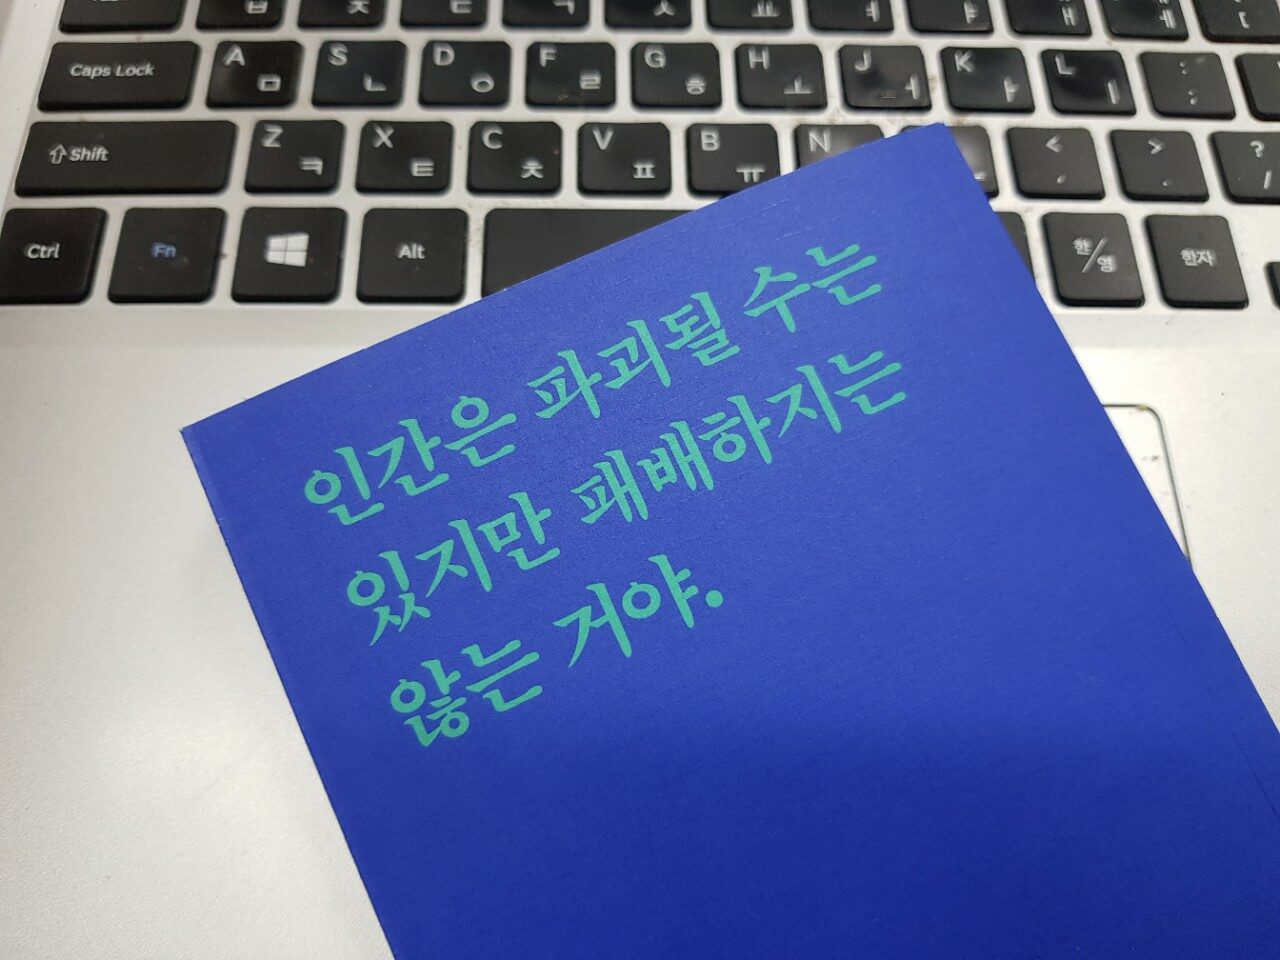 Caps Lock A ㅁ S ㄴ D ㅇ F ㄹ G ㅎ H ㅗ J ㅓ K ㅏ L ㅣ : ;
Shift Z ㅋ X ㅌ C ㅊ V ㅍ B ㅠ N < , > . ? /
Ctrl Fn Alt 한/영 한자
인간은 파괴될 수는
있지만 패배하지는
않는 거야.